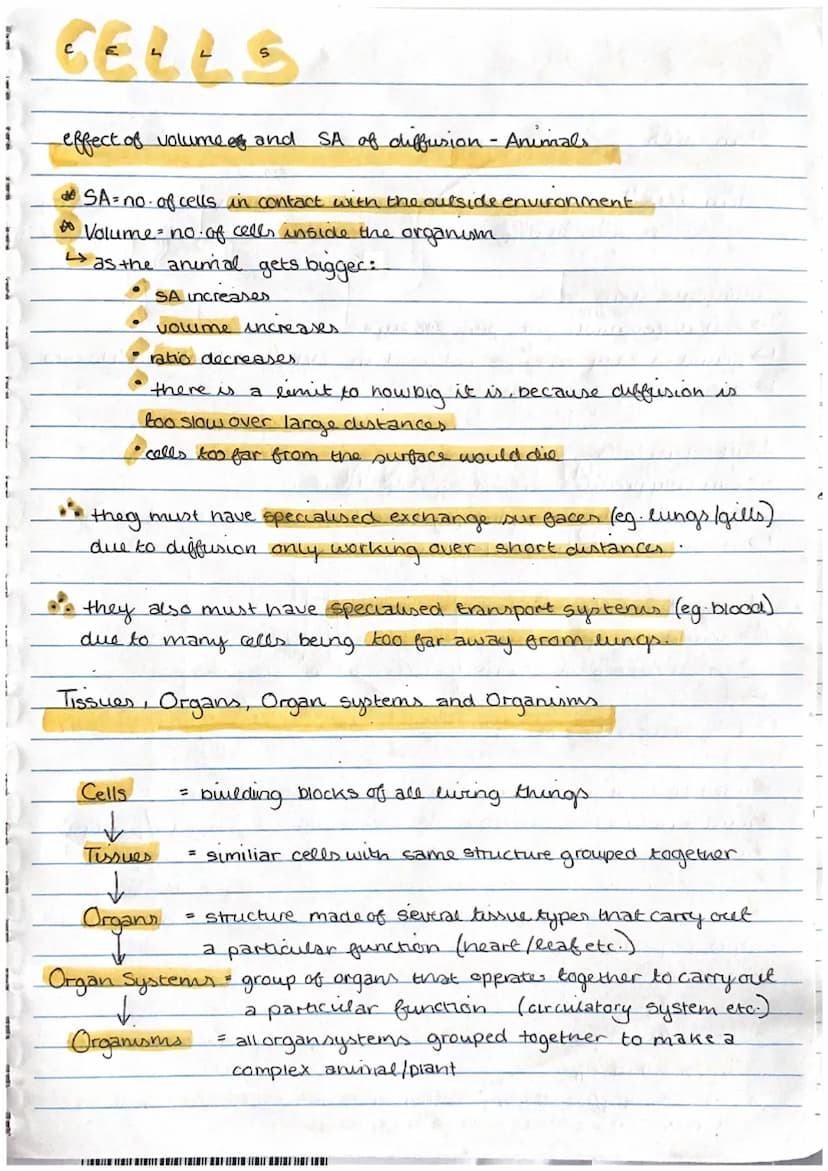 CELLS
effect of volume of and SA of diffusion - Animals
SA = no. of cells in contact with the outside environment
Volume = no. of cells inside the organism
↳ as the animal gets bigger:
• SA increases
• volume increases
• ratio decreases
• there is a limit to how big it is, because diffusion is
too slow over large distances
• cells too far from the surface would die
∴ they must have specialised exchange surfaces (eg. lungs/gills)
due to diffusion only working over short distances.
∴ they also must have specialised transport systems (eg. blood)
due to many cells being too far away from lungs.
Tissues, Organs, Organ systems and Organisms
Cells = building blocks of all living things
↓
Tissues = similiar cells with same structure grouped together
↓
Organs = structure made of several tissue types that carry out
a particular function (heart/leaf etc.)
↓
Organ Systems = group of organs that opprates together to carry out
a particular function (circulatory system etc.)
↓
Organisms = all organ systems grouped together to make a
complex animal/plant